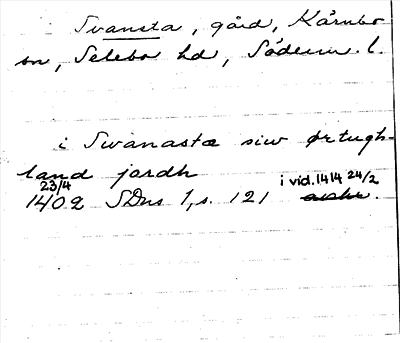 Svansta, gård, Kärnbo
sn, Selebo hd, Söderm. l.
i Swanastæ siw ørtugh-
land jordh
23/4
1402 SDns 1, s. 121 i vid. 1414 24/2
avskr.